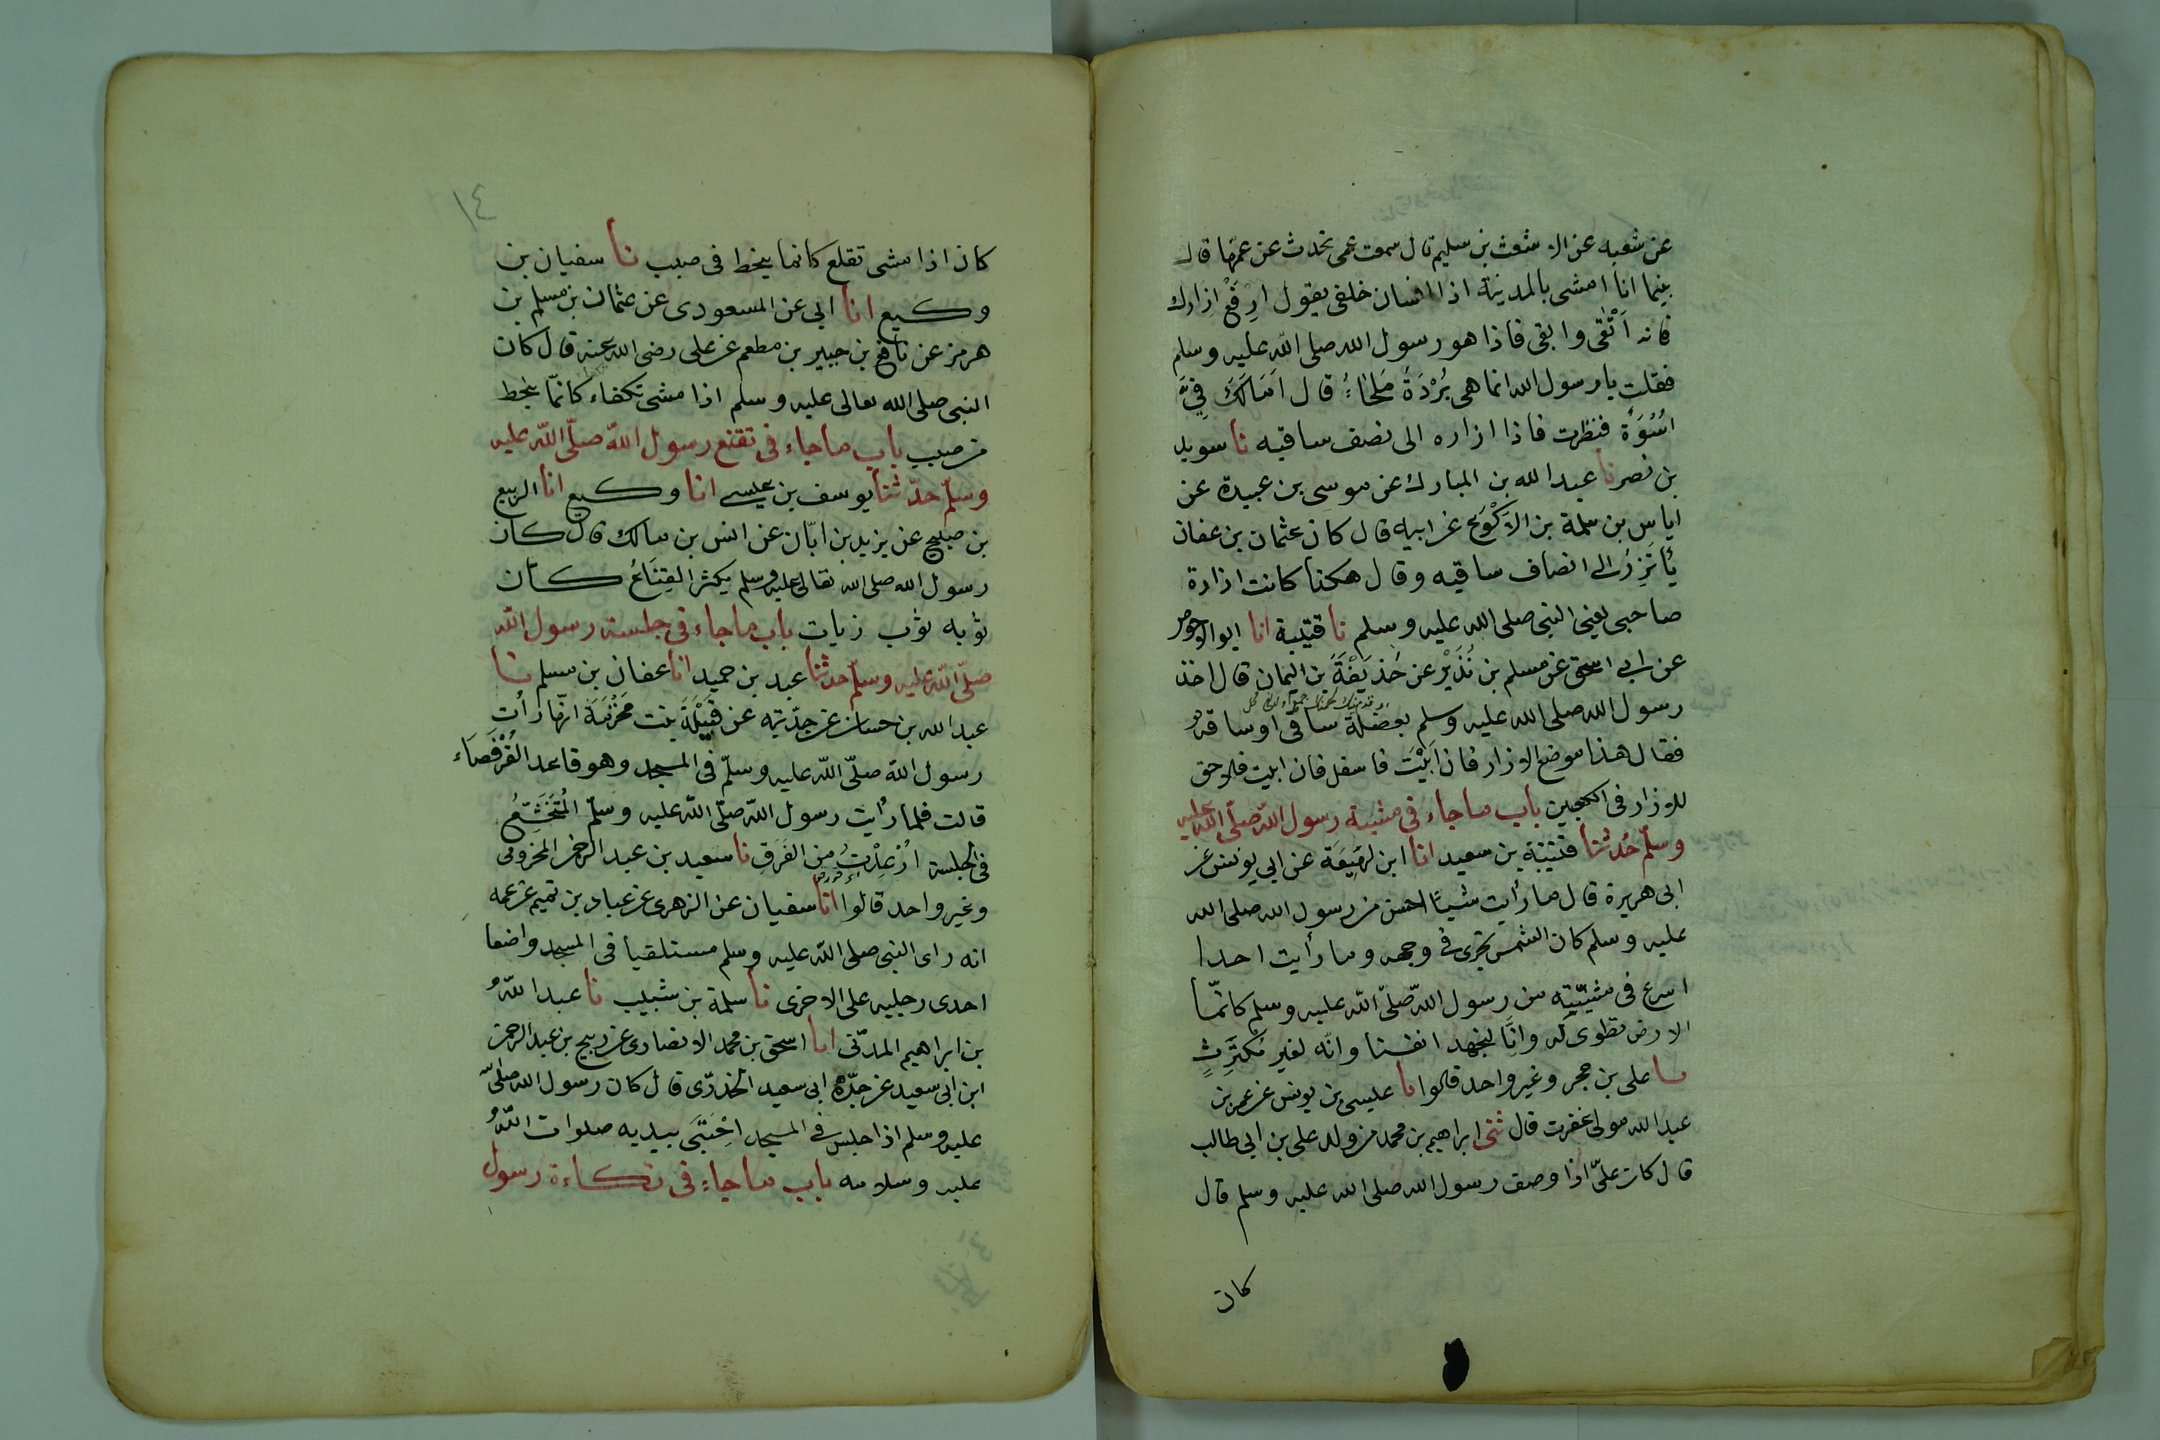 عن شعبه عن الاشعث بن سليم قال سمعت عمى تحدث عن عمها قال
بينما انا امشى بالمدينة اذا انسان خلفى يقول ارفَعْ اِزارك
فانه اَتْقٰى وابقى فاذا هو رسول الله صلى الله عليه وسلم
فقلت يا رسول الله انما هى بُرْدَةٌ مَلحَاءُ قال اَمَالَكَ فِىَّ
اُسْوَةٌ فنظرت فاذا ازاره الى نصف ساقيه نا سويد
بن نصر نا عبد الله بن المبارك عن موسى بن عبيدة عن
اياس بن سلمة بن الاَكْوَع عن ابيه قال كان عثمان بن عفان
يأتَزِرُ الى انصاف ساقيه وقال هكذا كانت ازارة
صاحبى يعنى النبى صلى الله عليه وسلم نا قتيبة انا ابو الاحوص
عن ابى اسحق عن مسلم بن نُذَيْر عن حُذَيْفَةَ بن اليمان قال اخذ
رسول الله صلى الله عليه وسلم بعضلة ساقى او ساقه
فقال هذا موضع الازار فان اَبَيْتَ فاسفل فان ابيت فلا حق
للازار فى الكعبين باب ما جاء فى مشية رسول الله صلّى الله عليه
وسلّم حدثنا قتيبة بن سعيد انا ابن لهيعَة عن ابى يونس عن
ابى هريرة قال ما رأيت شيئا احسن من رسول الله صلى الله
عليه وسلم كان الشمس تجرى فى وجهه وما رأيت احدا
اسرع فى مشيته من رسول الله صلّى الله عليه وسلم كانّما
الارض تطوى له وانّا لنجهد انفسنا وانّه لغير مُكْتَرِثٍ
نا على بن حجر وغير واحد قالوا نا عيسى بن يونس عن عمر بن
عبد الله مولى غفرت قال ثنى ابراهيم بن محمد من ولد على بن ابى طالب
قال كان علىّ اذا وصف رسول الله صلى الله عليه وسلم قال
كان
١٤
كان اذا مشى تقلع كانما ينحط فى صبب نا سفيان بن
وكيع انا ابى عن المسعودى عن عثمان بن مسلم بن
هرمز عن نافع بن جبير بن مطعم عن على رضى الله عنه قال كان
النبى صلى الله تعالى عليه وسلم اذا مشى تكفاء كانّما ينحط
من صبب باب ما جاء فى تقنع رسول الله صلّى الله عليه
وسلّم حدّثنا يوسف بن عيسى انا وكيع انا الربيع
بن صبيح عن يزيد بن ابّان عن انس بن مالك قال كان
رسول الله صلى الله تعالى عليه وسلم يكثر القِنَاعُ كان
ثوبه ثوب زيات باب ما جاء فى جلسة رسول الله
صلّى الله عليه وسلّم حدثنا عبد بن حميد انا عفان بن مسلم نا
عبد الله بن حسان عن جدّتيه عن قَيْلَةَ بنت مَخْرَمَةَ انّها رأت
رسول الله صلّى الله عليه وسلّم فى المسجد وهو قاعد القُرْفَصَاء
قالت فلما رأيت رسول الله صلّى الله عليه وسلّم المُتَخَشِّعُ
فى الجلسة اُرْعِدْتُ من الفَرَقِ نا سعيد بن عبد الرحمن المخزومى
وغير واحد قالوا انا سفيان عن الزهرى عن عباد بن تميم عن عمه
انه راى النبى صلى الله عليه وسلم مستلقيا فى المسجد واضعا
احدى رجليه على الاخرى نا سلمة بن شبيب نا عبد الله
بن ابراهيم المدنى انا اسحق بن محمد الانصارى عن ربيح بن عبد الرحمن
ابن ابى سعيد عن جدّه ابى سعيد الخدرّى قال كان رسول الله صلى الله
عليه وسلم اذا جلس فى المسجد اِحْتَبَى بيديه صلوات الله
عليه وسلامه باب ما جاء فى تكاءة رسول